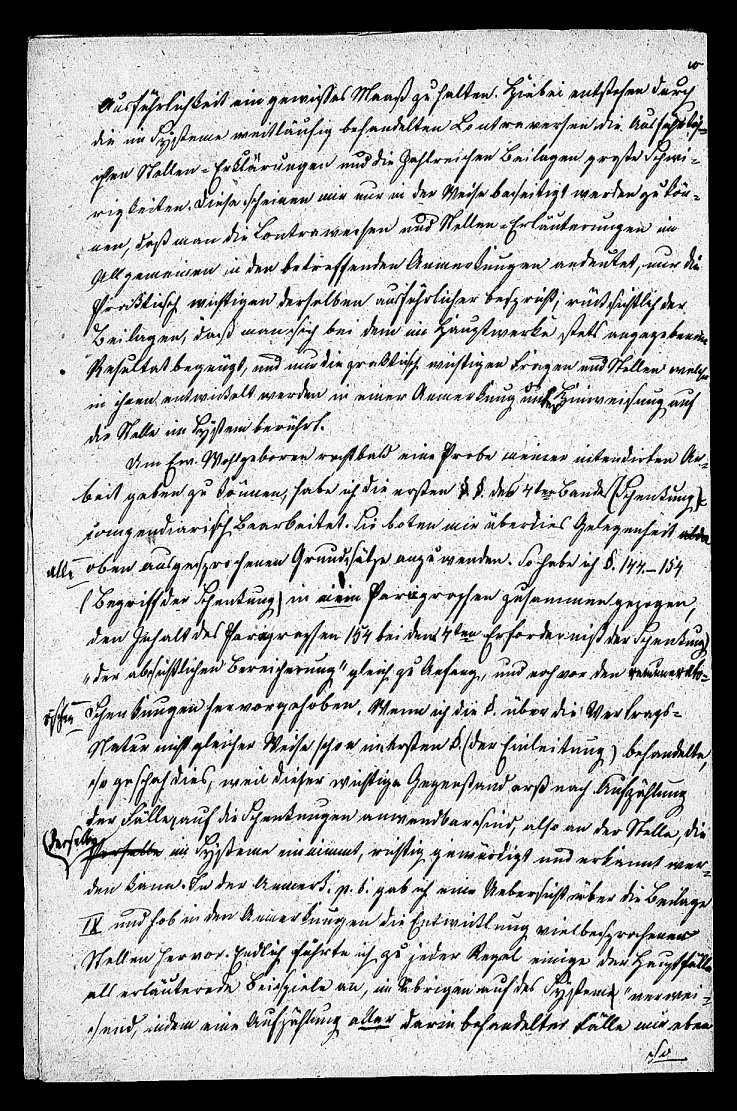 Ausführlichkeit ein gewisses Maaß zu halten. Hiebei entstehen durch
die im Systeme weitläufig behandelten Controversen die ausführli-
chen Stellen-Erklärungen und die zahlreichen Beilagen große Schwie-
rigkeiten. Diese scheinen mir nur in der Weise beseitigt werden zu kön-
nen, daß man die Controversen und Stellen-Erläuterungen im
Allgemeinen in den betreffenden Anmerkungen andeutet, nur die
praktisch wichtigen derselben ausführlicher bespricht; rücksichtlich der
Beilagen, daß man sich bei dem im Hauptwerke stets angegebenen
Resultat begnügt, und nur die praktisch wichtigen Fragen und Stellen welche
in ihnen entwickelt werden in einer Anmerkung unter Hinweisung auf
die Stelle im System berührt.
Um Ew. Wohlgeboren rechtbald eine Probe meiner intendirten Ar-
beit geben zu können, habe ich die ersten §.§. des 4ten Bandes (Schenkung)
compendiarisch bearbeitet. Sie boten mir überdies Gelegenheit
alle oben ausgesprochenen Grundsätze anzuwenden. So habe ich §. 144.–154
(Begriff der Schenkung) in Paragraphen zusammen gezogen,
den Inhalt des Paragraphen 154 bei dem 4ten Erforderniß der Schenkung
"der absichtlichen Bereicherung" gleich zu Anfang, und noch vor den remunerato-
rischen Schenkungen hervorgehoben. Wenn ich die §. über die Vertrags-
Natur nicht gleicher Weise schon im ersten §. (der Einleitung) behandelte,
so geschah dies, weil dieser wichtige Gegenstand erst nach Aufzählung
der Fälle, auf die Schenkungen anwendbar sind, also an der Stelle, die
derselbe im Systeme einnimmt, richtig gewürdigt und erkannt wer-
den kann. In der Anmerk. p. 6. gab ich eine Uebersicht über die Beilage
IX und hob in den Anmerkungen die Entwicklung vielbesprochener
Stellen hervor. Endlich führte ich zu jeder Regel einige der Hauptfälle
als erläuternde Beispiele an, im Übrigen auf das "System" verwei-
send, indem eine Aufzählung aller darin behandelter Fälle mir eben
so